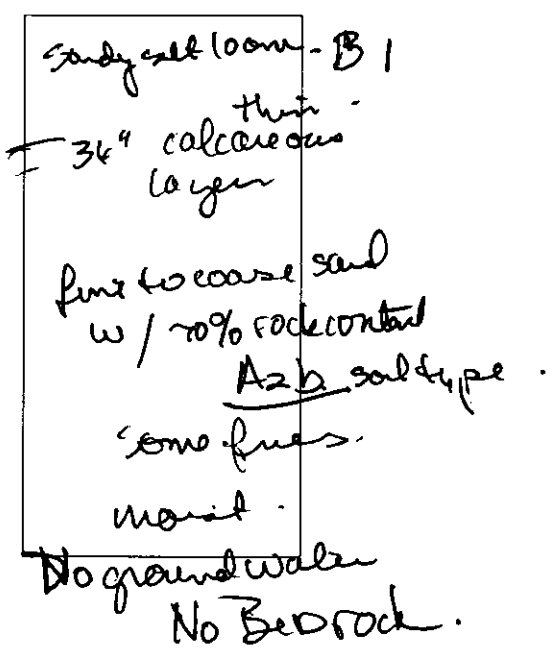 Sandy silt loam - B1
thin
36" calcareous
layer
fine to coarse sand
w/ 70% rock content
A2b soil type.
some fines.
moist.
No ground water
No Bedrock.